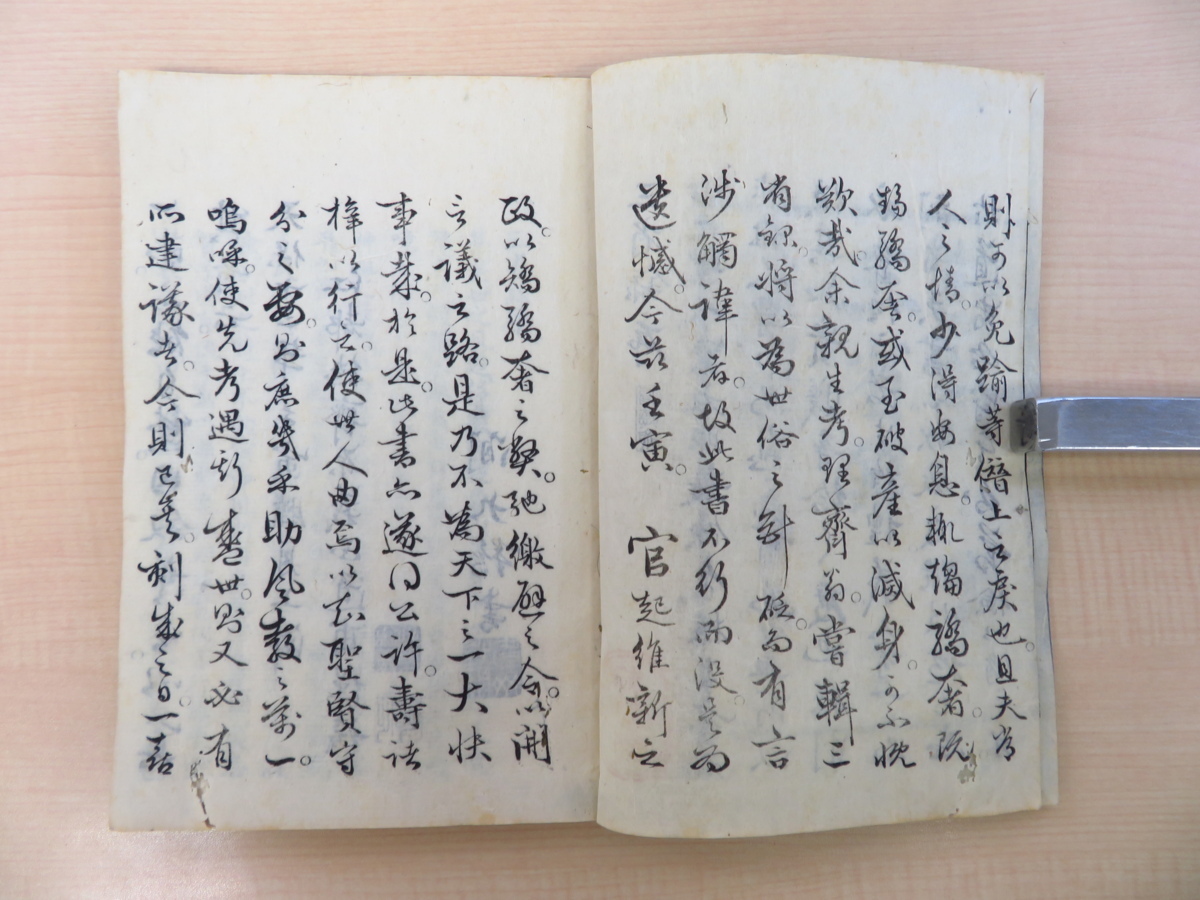 則可以免踰等僭上之戾也。且夫常
人之情。少得安息。輒趨驕奢。既
驕奢。或至破産以滅身。可不慨
歎哉。余親生考。理齋翁。嘗輯三
省録。将以為世俗之針砭。而有言
涉觸諱者。故此書不行而没。是為
遺憾。今茲壬寅。官起維新之
政。以矯驕奢之弊。弛繳歷之令。以開
言議之路。是乃不為天下之一大快
事哉。於是。此書亦遂得公許。壽諸
梓以行之。使世人由焉以知聖賢守
分之安。則庶幾乎助風教之萬一。
嗚呼。使先考遇斯盛世。則又必有
所建議者。今則已矣。刻成之日。一喜